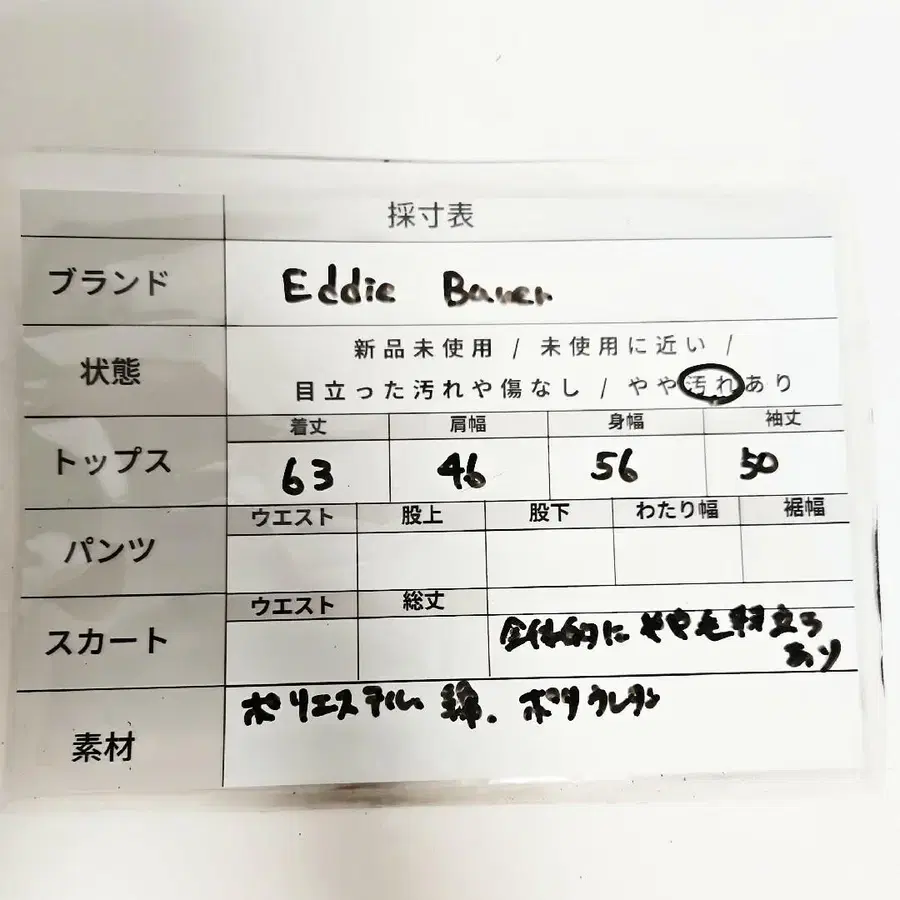 採寸表
ブランド Eddie Bauer
状態 新品未使用 / 未使用に近い /
目立った汚れや傷なし / やや汚れあり
着丈 肩幅 身幅 袖丈
トップス 63 46 56 50
ウエスト 股上 股下 わたり幅 裾幅
パンツ
ウエスト 総丈
スカート 全体的にやや毛羽立ち
あり
素材 ポリエステル 綿. ポリウレタン